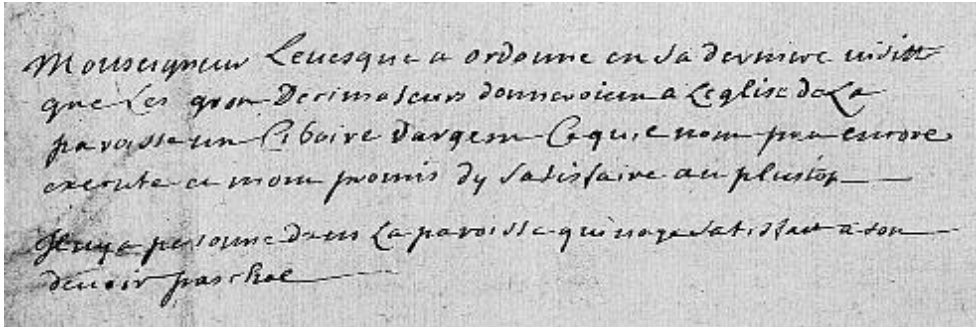 Monseigneur Levesque a ordonne en sa derniere visitte
que Les gros Decimateurs donneroient a Leglise de La
paroisse un Ciboire dargent Ce quil nont pas encore
execute et mont promis dy satisfaire au plustost
Il ny a personne dans La paroisse qui naye satisfait a son
devoir paschal